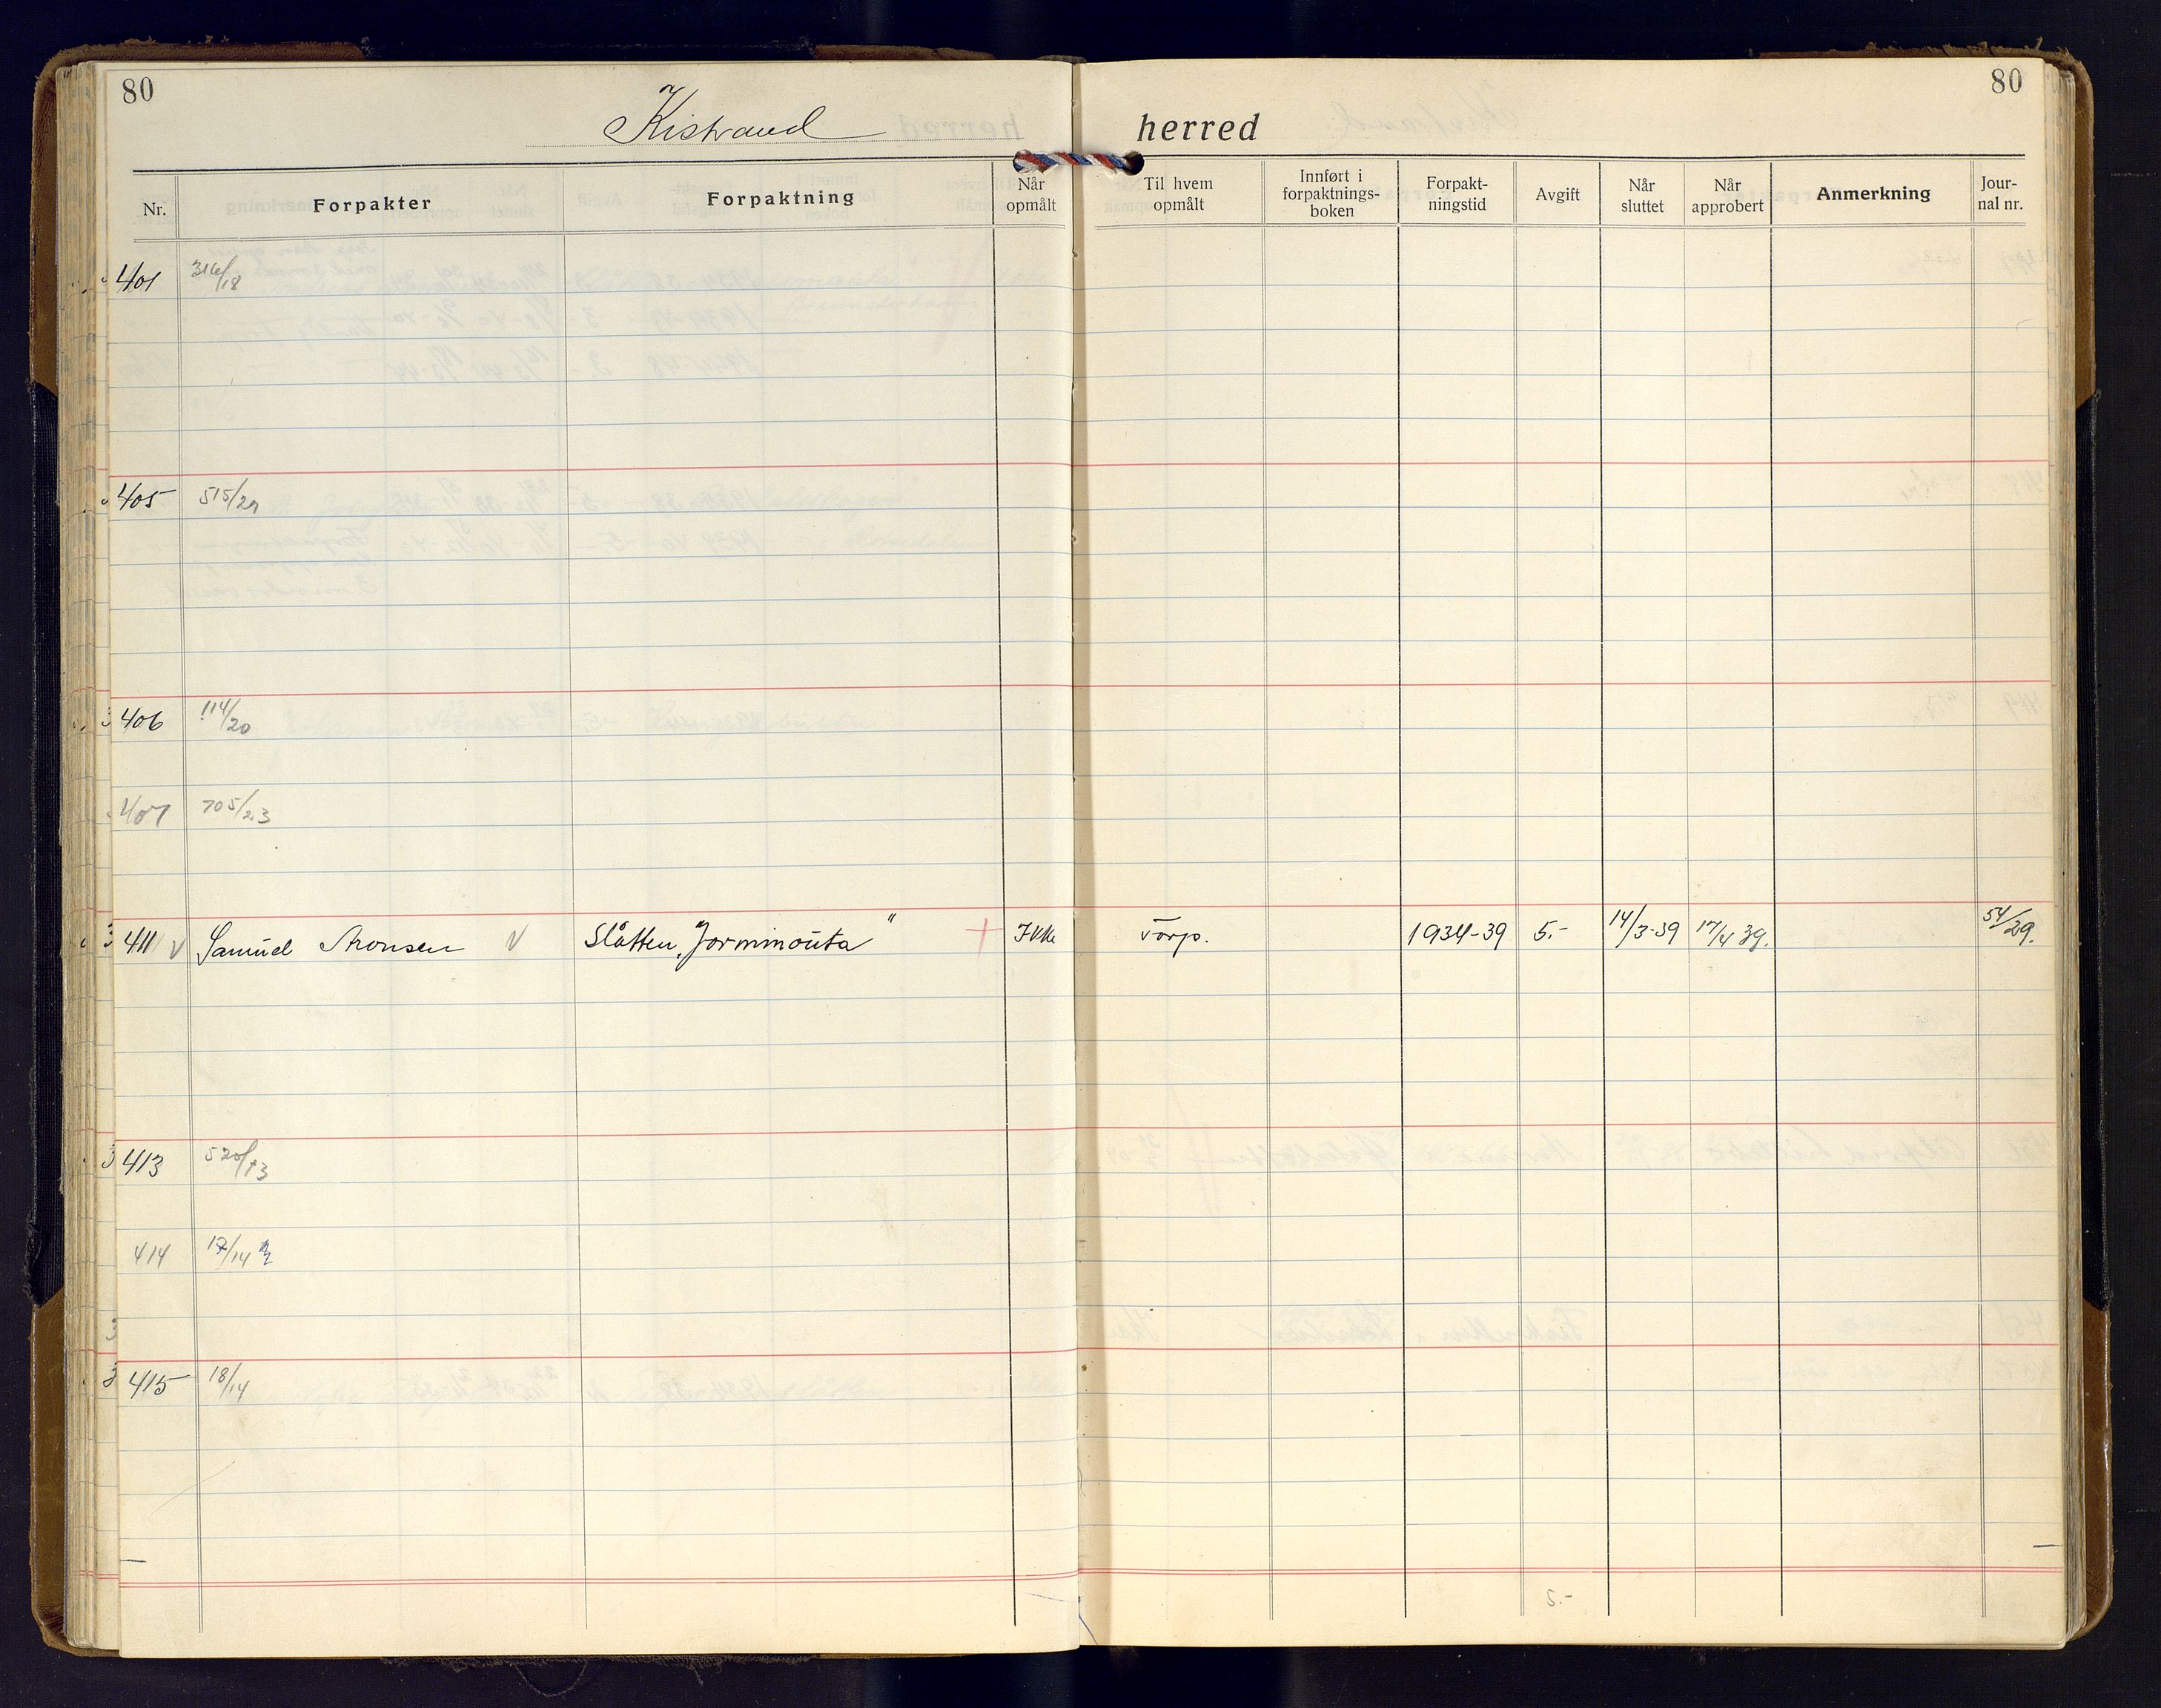 80
80
Kistrand herred
Nr. Forpakter Forpaktning Når opmålt Til hvem opmålt Innført i forpaktnings-boken Forpakt-ningstid Avgift Når sluttet Når approbert Anmerkning Jour-nal nr.
401 316/18
405 515/27
406 114/20
407 705/23
411 V Samuel Aronsen V Slåtten „Jorminouta" + Ikke Torp. 1934-39 5.- 14/3-39 17/4 39. 54/29.
413 520/13
414 17/14
415 18/14
5.-